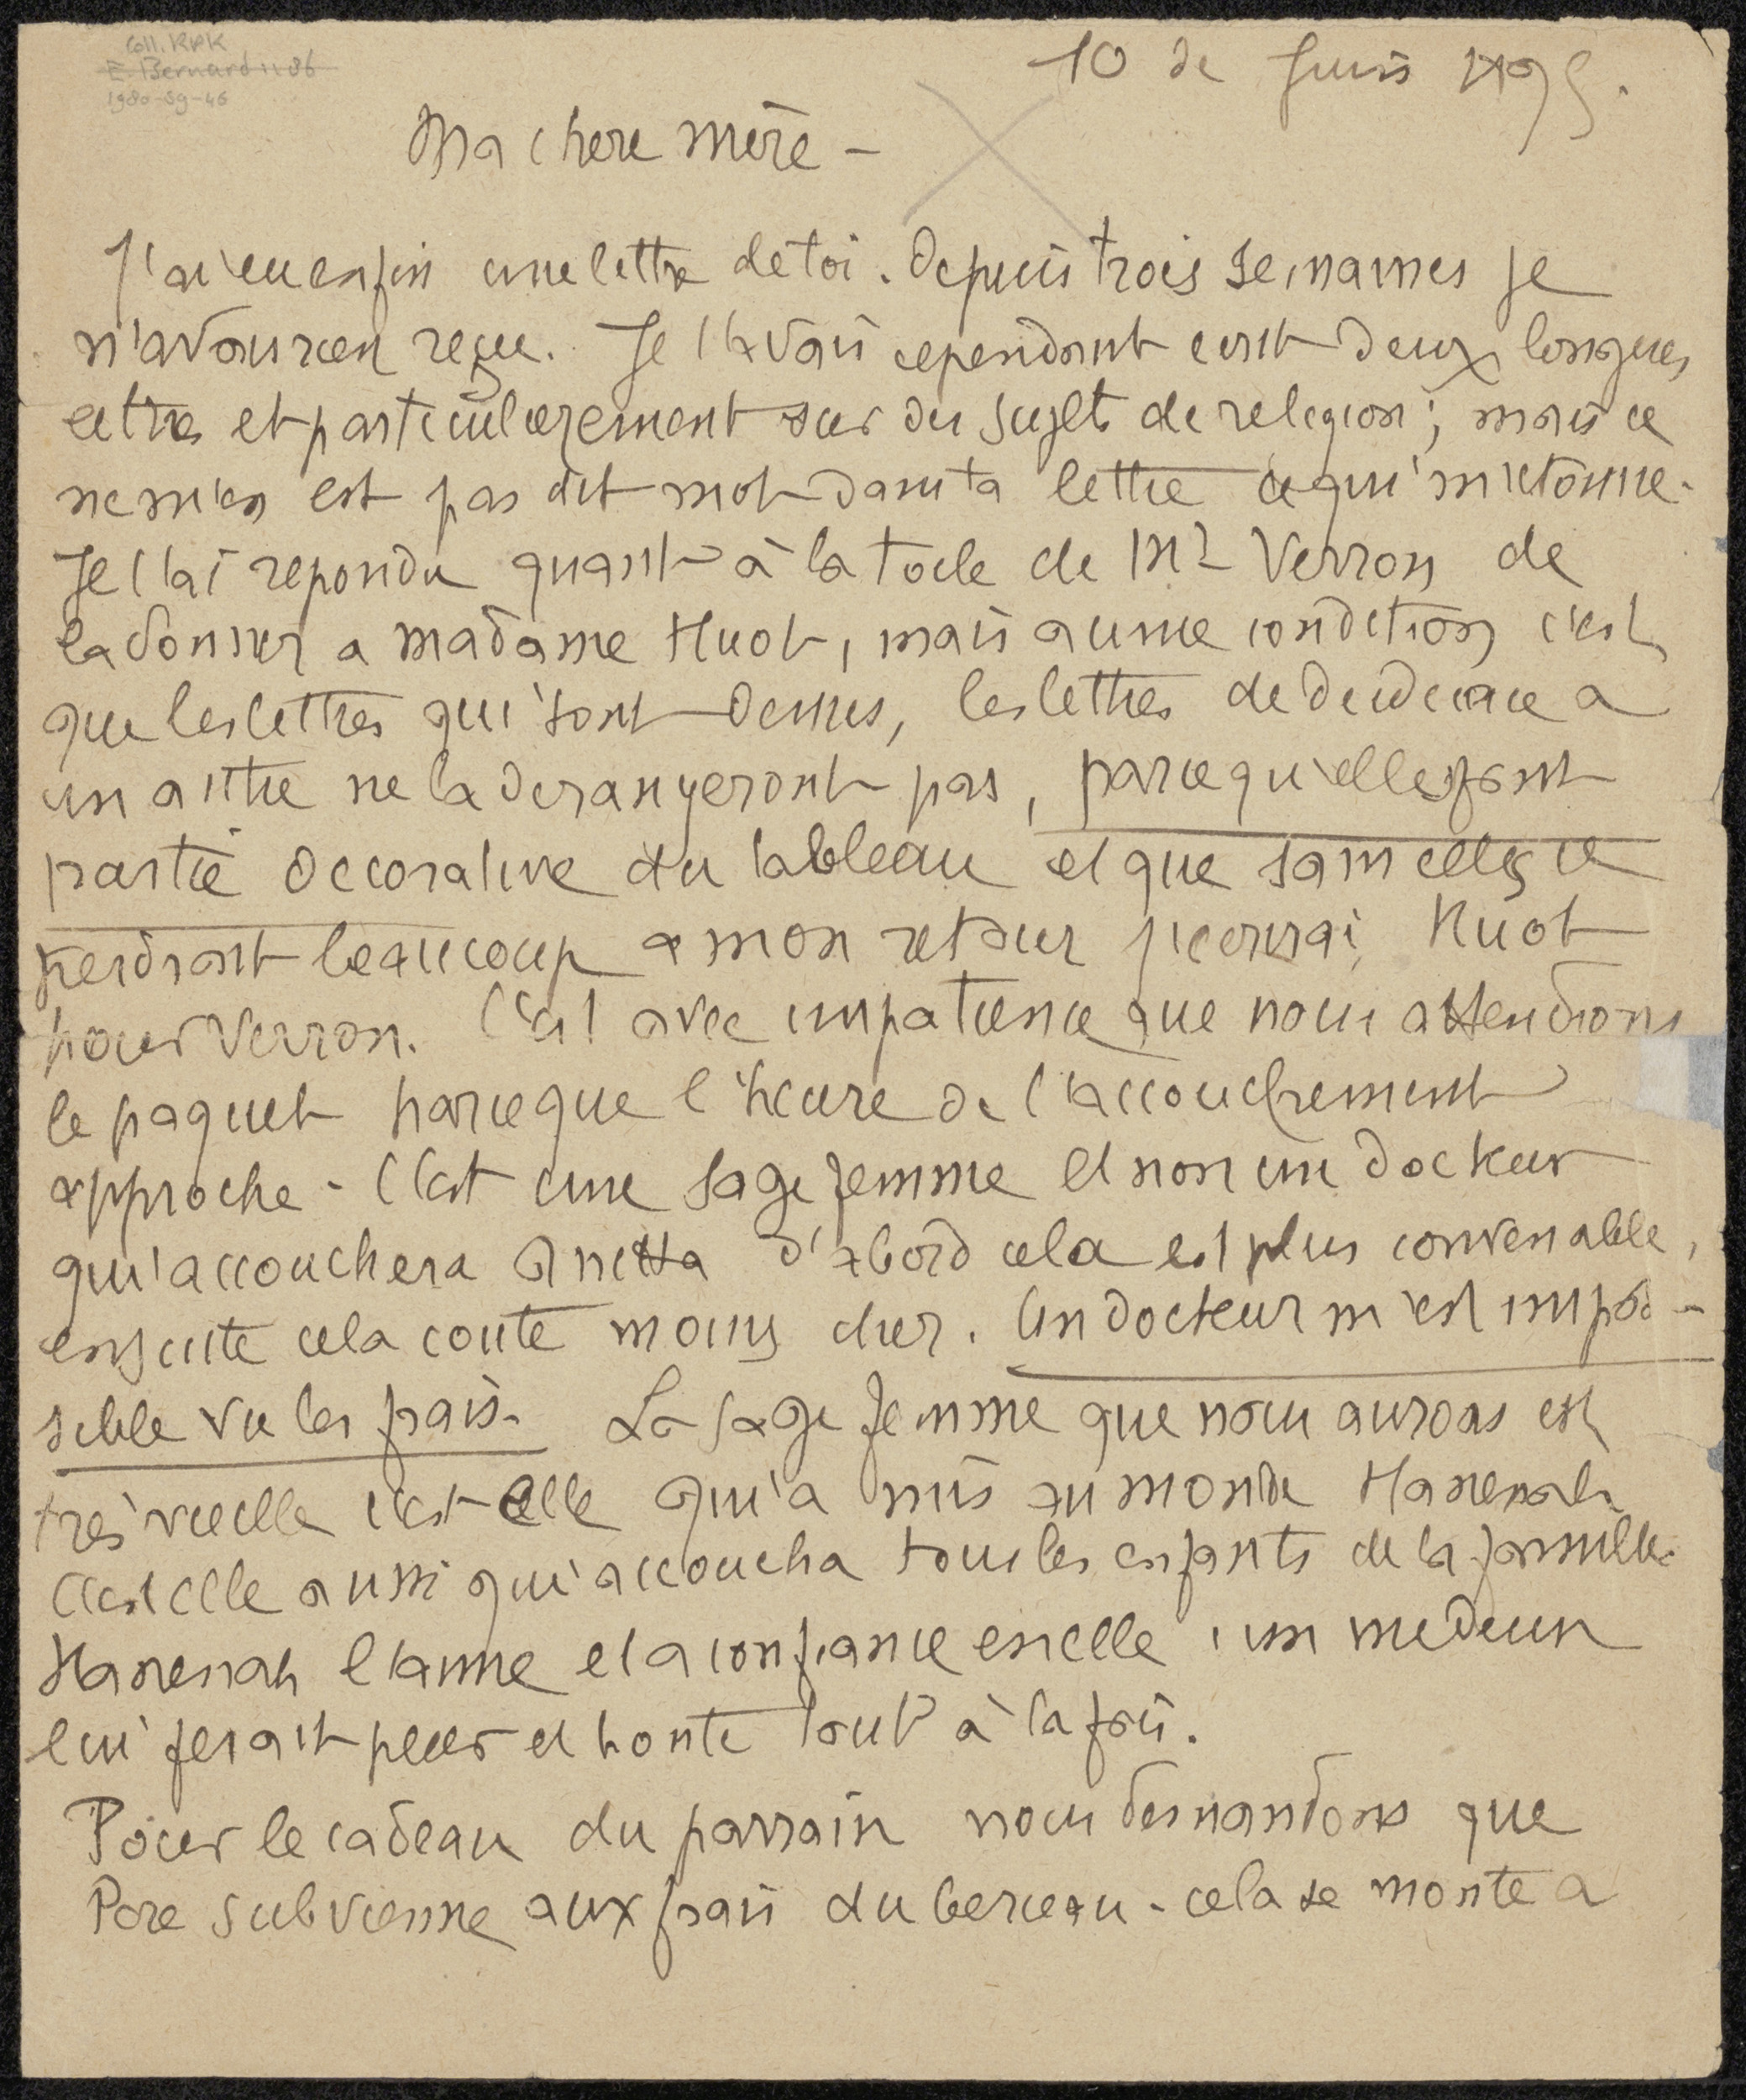 Coll. RPK
E. Bernard 1186
1980-59-46
10 de Juin 1895.
Ma chere mère -
J'ai eu enfin une lettre de toi. Depuis trois semaines je
n'avais rien reçu. Je t'avais cependant ecrit deux longues
lettres et particulierement sur des sujets de religion; mais ce
ne m'en est pas dit mot dans ta lettre ce qui m'etonne.
Je t'ai repondu quant à la toile de Mr Verron de
la donner a madame Huot, mais a une condition c'est
que les lettres qui sont dessus, les lettres de dedicace a
un autre ne la derangeront pas, parce qu'elles font
partie decorative du tableau et que sans elles ce
perdront beaucoup a mon retour Huot
pour Verron. C'est avec impatience que nous attendrons
le paquet parce que l'heure de l'accouchement
approche - C'est une sage femme et non un docteur
qu'accouchera Anetta d'abord cela est plus convenable,
ensuite cela coute moins cher. Un docteur m'est impos-
sible vu les frais. La sage femme que nous aurons est
très vieille c'est elle qu'a mis au monde Hanenah
C'est elle aussi qu'accoucha tous les enfants de la famille.
Hanenah l'aime et a confiance en elle, un medecin
lui ferait peur et honte tout à la fois.
Pour le cadeau du parrain nous demandons que
Pere subvienne aux frais du berceau - cela se monte a